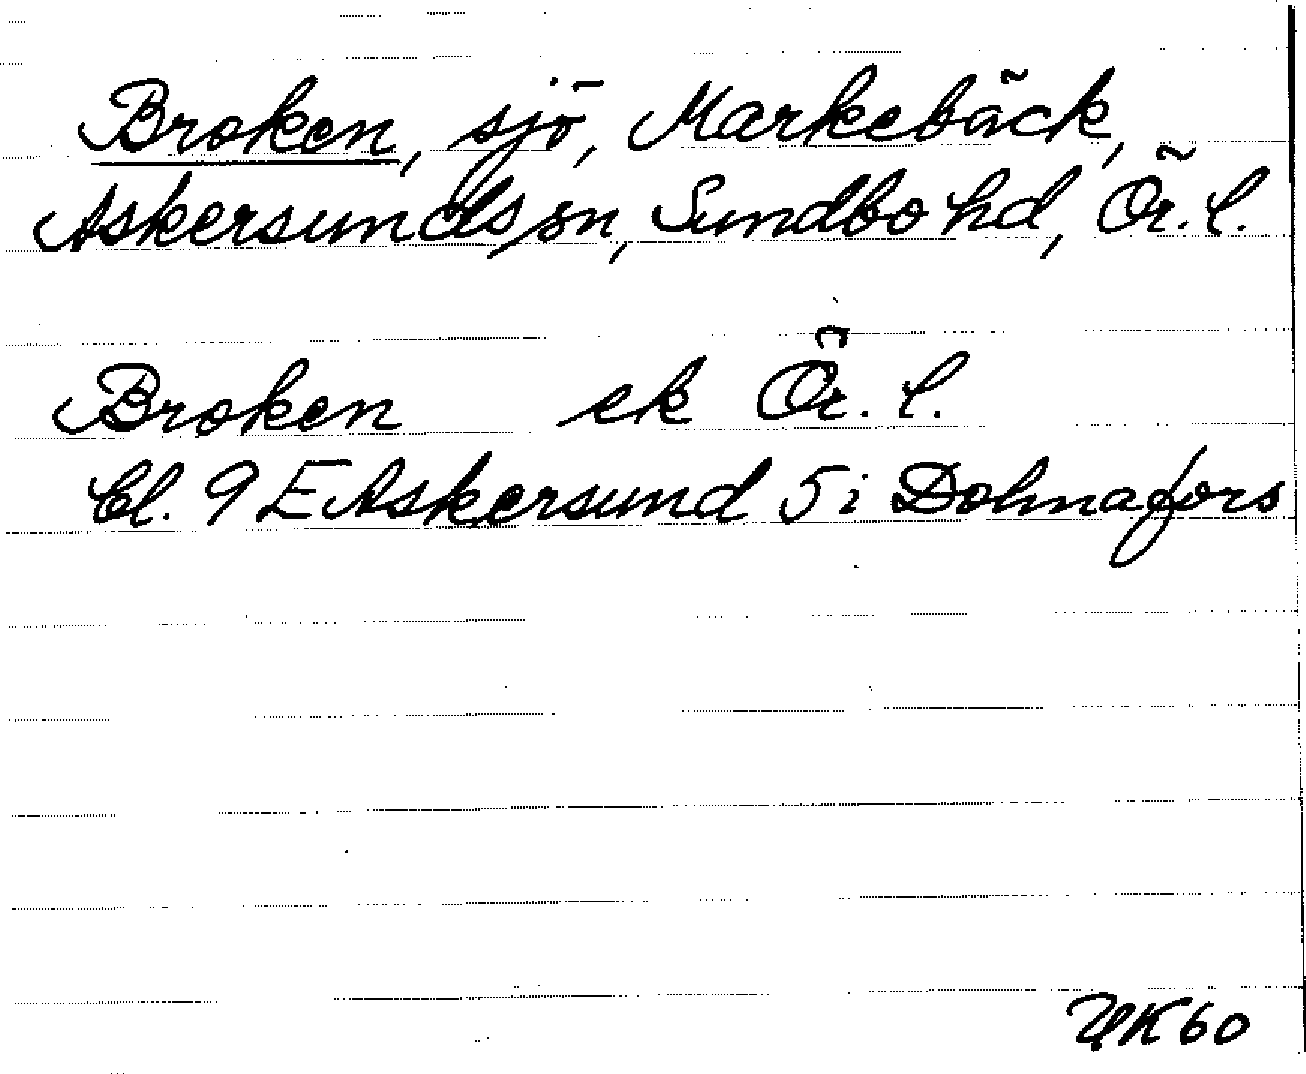 Broken, sjö, Markebäck,
Askersunds sn, Sundbo hd, Ör. l.
Broken ek Ör. l.
Bl. 9 E Askersund 5 i Dohnafors
YK 60